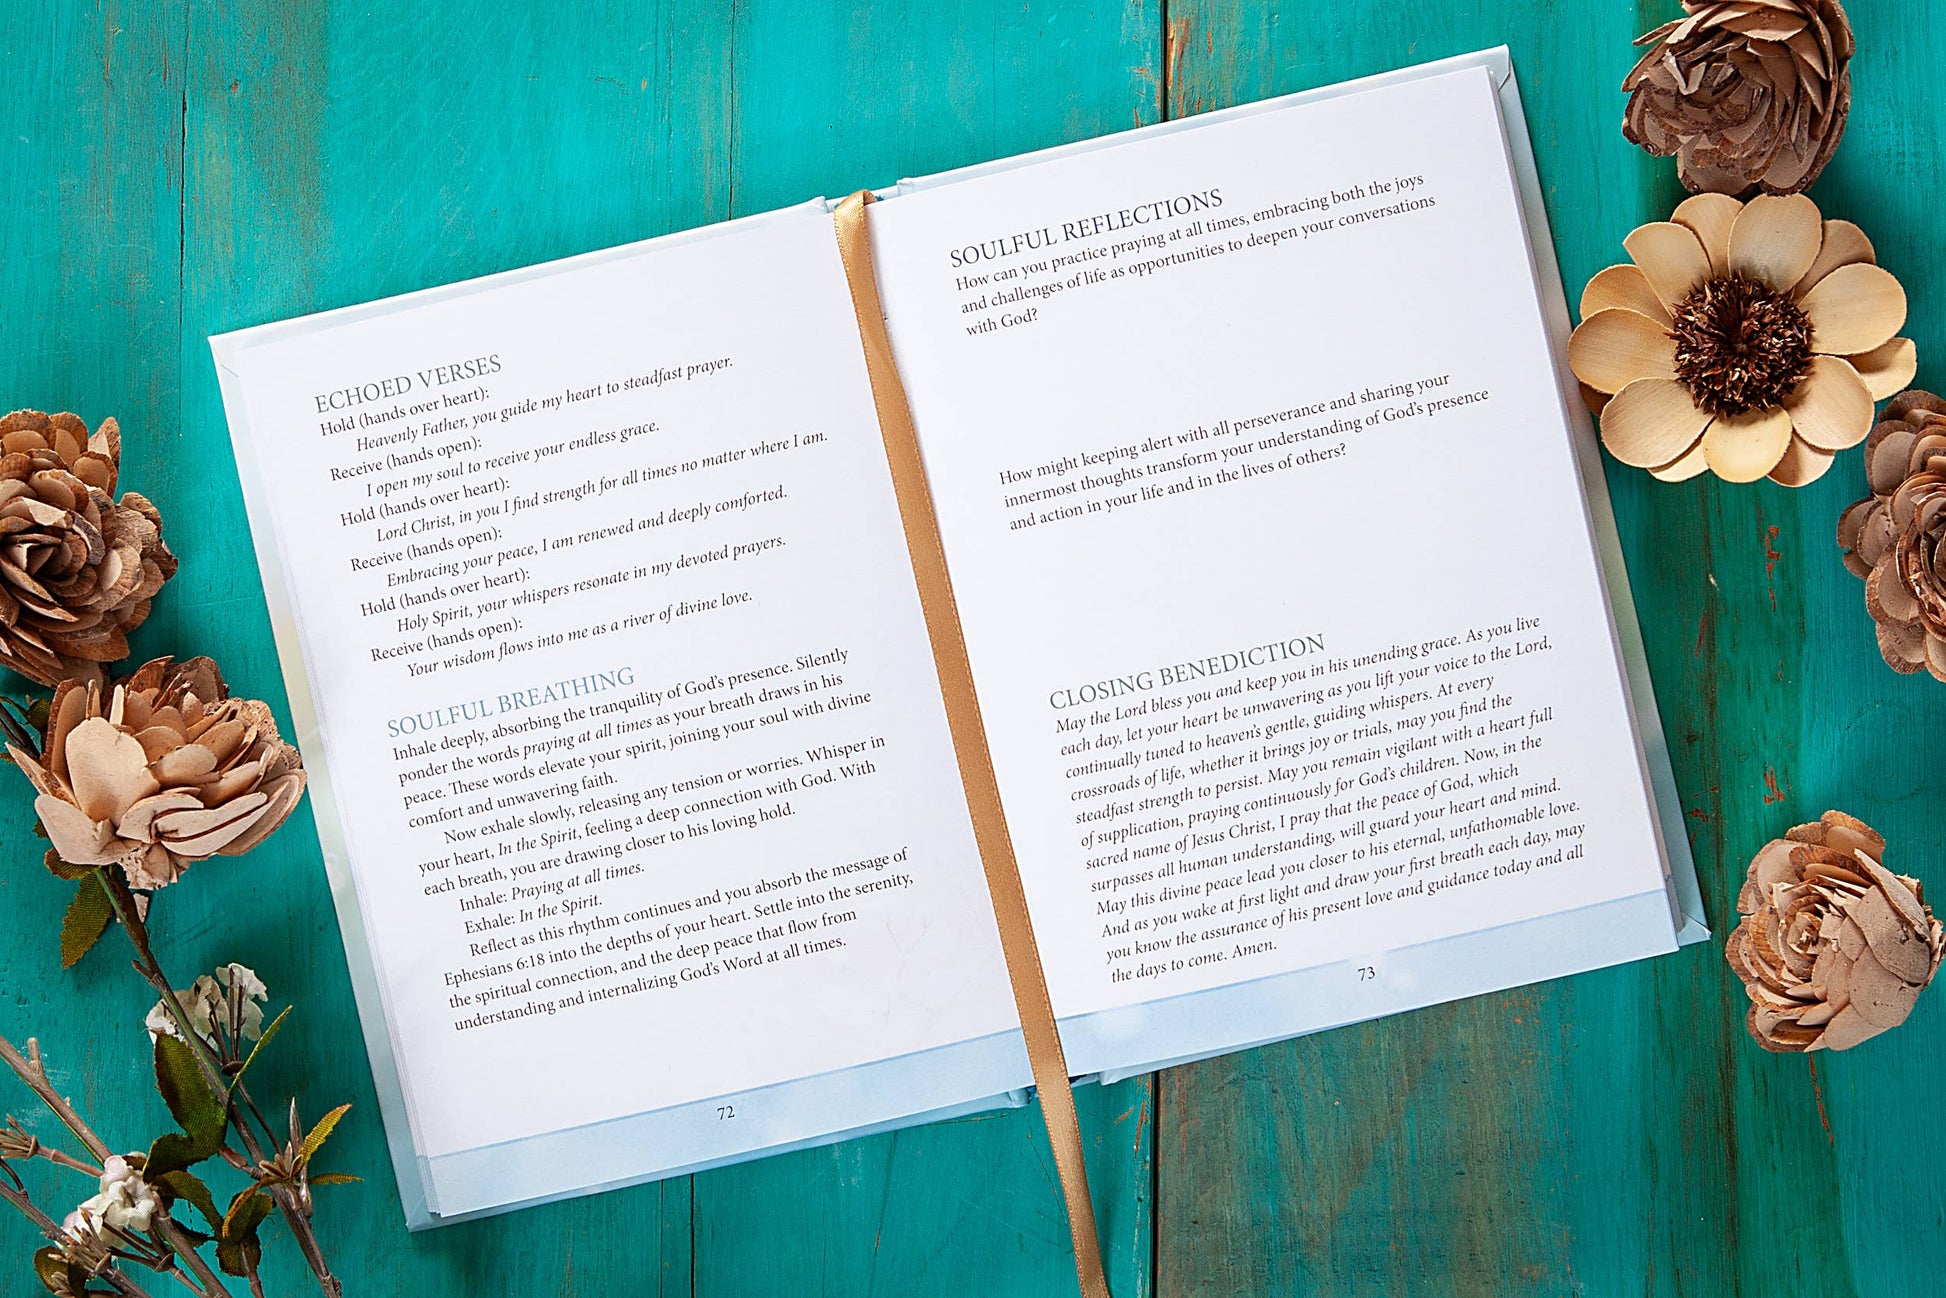 ECHOED VERSES
Hold (hands over heart):
Heavenly Father, you guide my heart to steadfast prayer.
Receive (hands open):
I open my soul to receive your endless grace.
Hold (hands over heart):
Lord Christ, in you I find strength for all times no matter where I am.
Receive (hands open):
Embracing your peace, I am renewed and deeply comforted.
Hold (hands over heart):
Holy Spirit, your whispers resonate in my devoted prayers.
Receive (hands open):
Your wisdom flows into me as a river of divine love.
SOULFUL BREATHING
Inhale deeply, absorbing the tranquility of God's presence. Silently
ponder the words praying at all times as your breath draws in his
peace. These words elevate your spirit, joining your soul with divine
comfort and unwavering faith.
Now exhale slowly, releasing any tension or worries. Whisper in
your heart, In the Spirit, feeling a deep connection with God. With
each breath, you are drawing closer to his loving hold.
Inhale: Praying at all times.
Exhale: In the Spirit.
Reflect as this rhythm continues and you absorb the message of
Ephesians 6:18 into the depths of your heart. Settle into the serenity,
the spiritual connection, and the deep peace that flow from
understanding and internalizing God's Word at all times.
72
SOULFUL REFLECTIONS
How can you practice praying at all times, embracing both the joys
and challenges of life as opportunities to deepen your conversations
with God?
How might keeping alert with all perseverance and sharing your
innermost thoughts transform your understanding of God's presence
and action in your life and in the lives of others?
CLOSING BENEDICTION
May the Lord bless you and keep you in his unending grace. As you live
each day, let your heart be unwavering as you lift your voice to the Lord,
continually tuned to heaven's gentle, guiding whispers. At every
crossroads of life, whether it brings joy or trials, may you find the
steadfast strength to persist. May you remain vigilant with a heart full
of supplication, praying continuously for God's children. Now, in the
sacred name of Jesus Christ, I pray that the peace of God, which
surpasses all human understanding, will guard your heart and mind.
May this divine peace lead you closer to his eternal, unfathomable love.
And as you wake at first light and draw your first breath each day, may
you know the assurance of his present love and guidance today and all
the days to come. Amen.
73